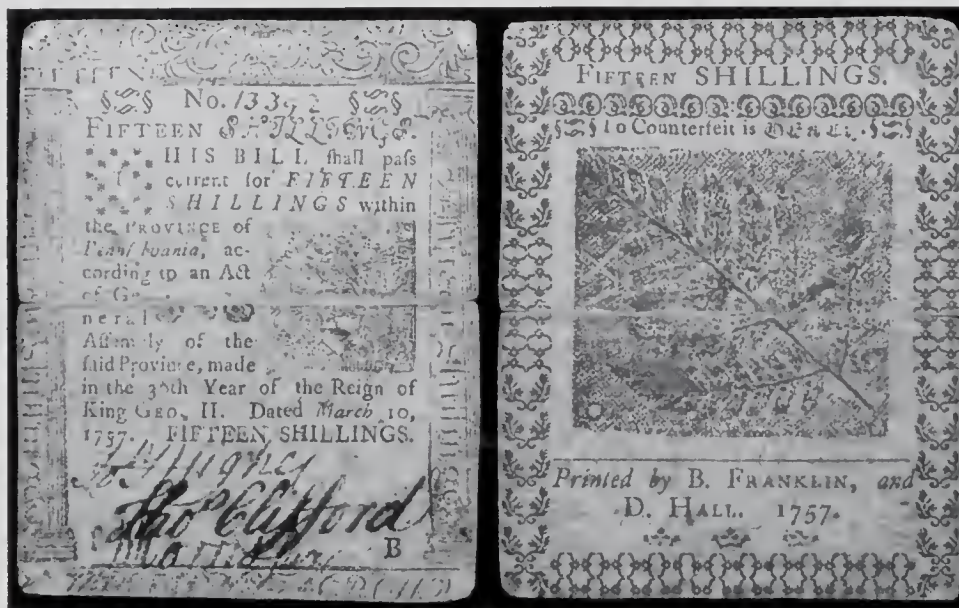 No. 1339
FIFTEEN SHILLINGS.
HIS BILL ſhall paſs
current for FIFTEEN
SHILLINGS within
the PROVINCE of
ac-
cording to an Act
of
neral
Aſſembly of the
ſaid Province, made
in the Year of the Reign of
King GEO. II. Dated March 10,
1757. FIFTEEN SHILLINGS.
Hughes
Tho Clifford
B
FIFTEEN SHILLINGS.
To Counterfeit is DEATH.
Printed by B. FRANKLIN, and
D. HALL. 1757.